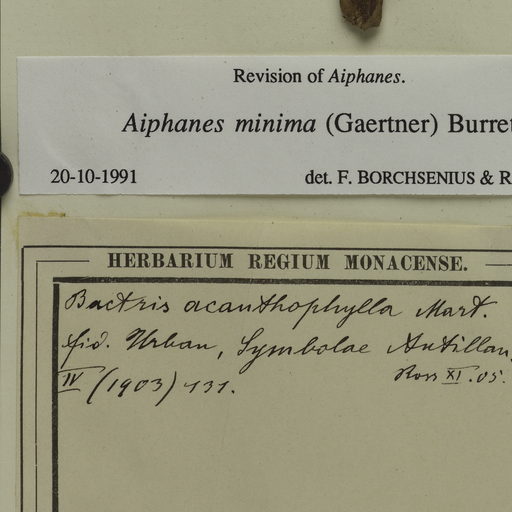 Revision of Aiphanes.
Aiphanes minima (Gaertner) Burret
20-10-1991 det. F. BORCHSENIUS & R
HERBARIUM REGIUM MONACENSE.
Bactris acanthophylla Mart.
fid. Urban, Symbolae Antillan.
IV (1903) 131.
Ross XI.05.